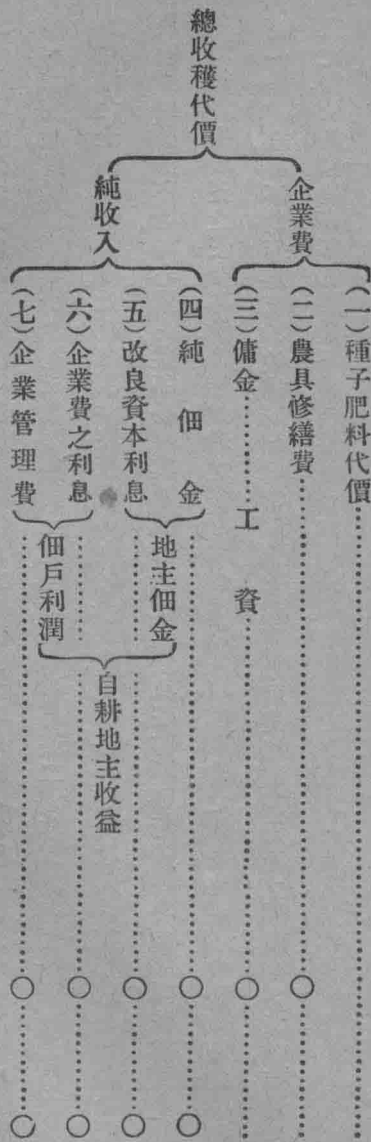 總收穫代價
企業費
（一）種子肥料代價
（二）農具修繕費………○
（三）傭金………工資………○
純收入
（四）純佃金………○………○
（五）改良資本利息………○………○
地主佃金
（六）企業費之利息………○………○
（七）企業管理費………○………○
佃戶利潤
自耕地主收益